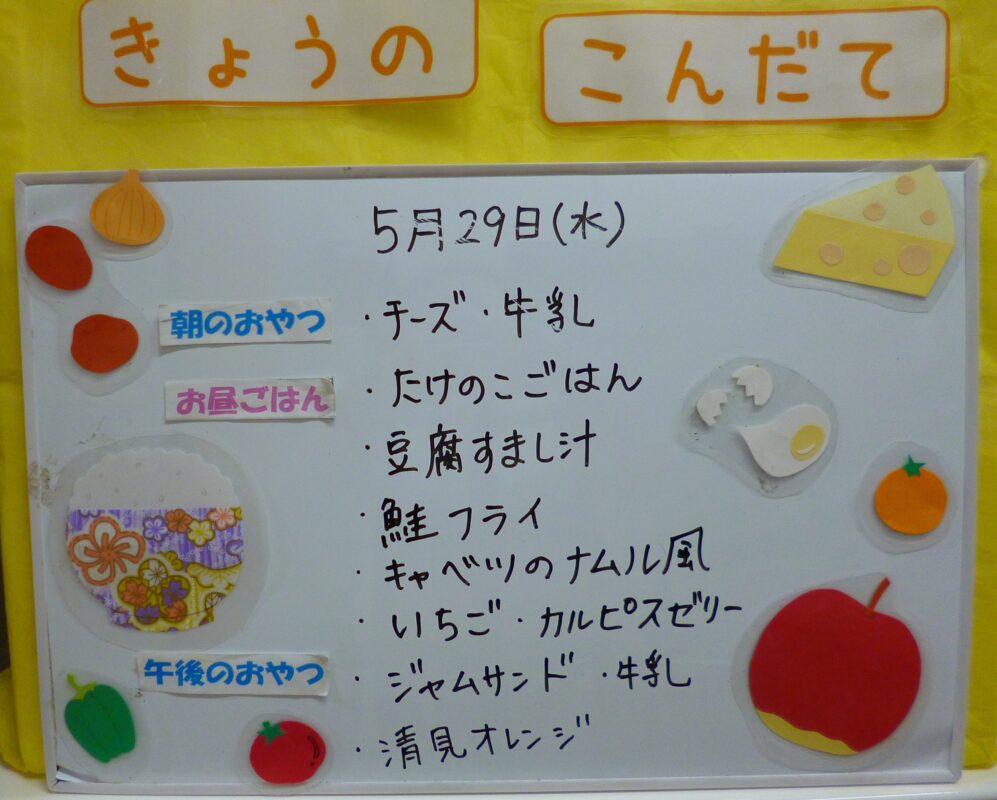 きょうの こんだて
5月29日(水)
朝のおやつ ・チーズ・牛乳
お昼ごはん ・たけのこごはん
・豆腐すまし汁
・鮭フライ
・キャベツのナムル風
・いちご・カルピスゼリー
午後のおやつ ・ジャムサンド・牛乳
・清見オレンジ